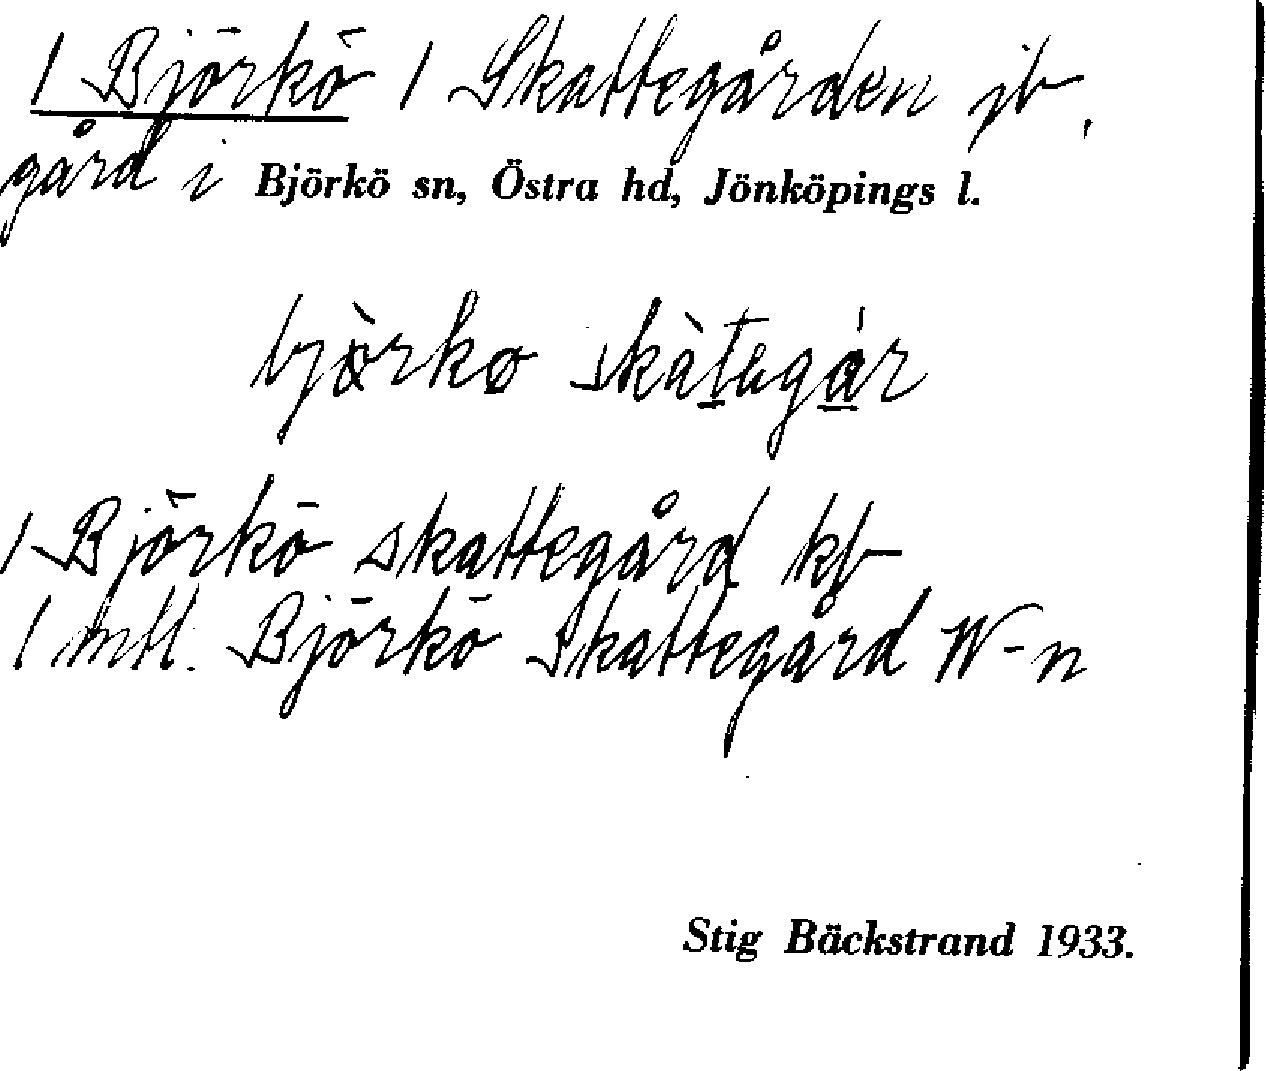 / Björkö / Skattegården jb,
gård i Björkö sn, Östra hd, Jönköpings l.
bjòrkø skàtegár
/ Björkö skattegård kb
1 mtl. Björkö Skattegård W-n
Stig Bäckstrand 1933.